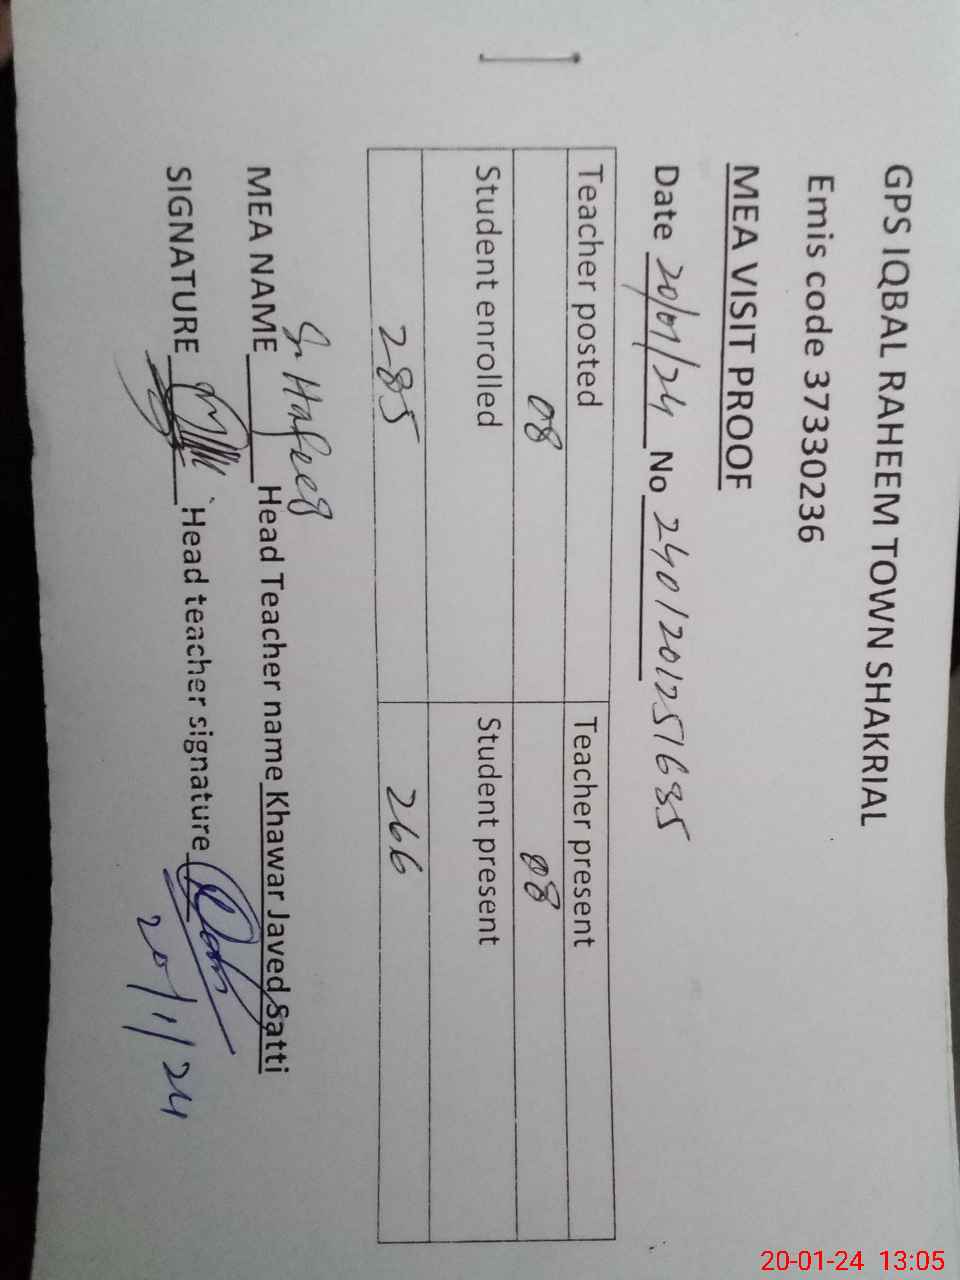 GPS IQBAL RAHEEM TOWN SHAKRIAL
Emis code 37330236
MEA VISIT PROOF
Date 20/01/24 No 2401201251685
Teacher posted Teacher present
08 08
Student enrolled Student present
285 266
MEA NAME Hafeez Head Teacher name Khawar Javed Satti
SIGNATURE Head teacher signature
20/1/24
20-01-24 13:05